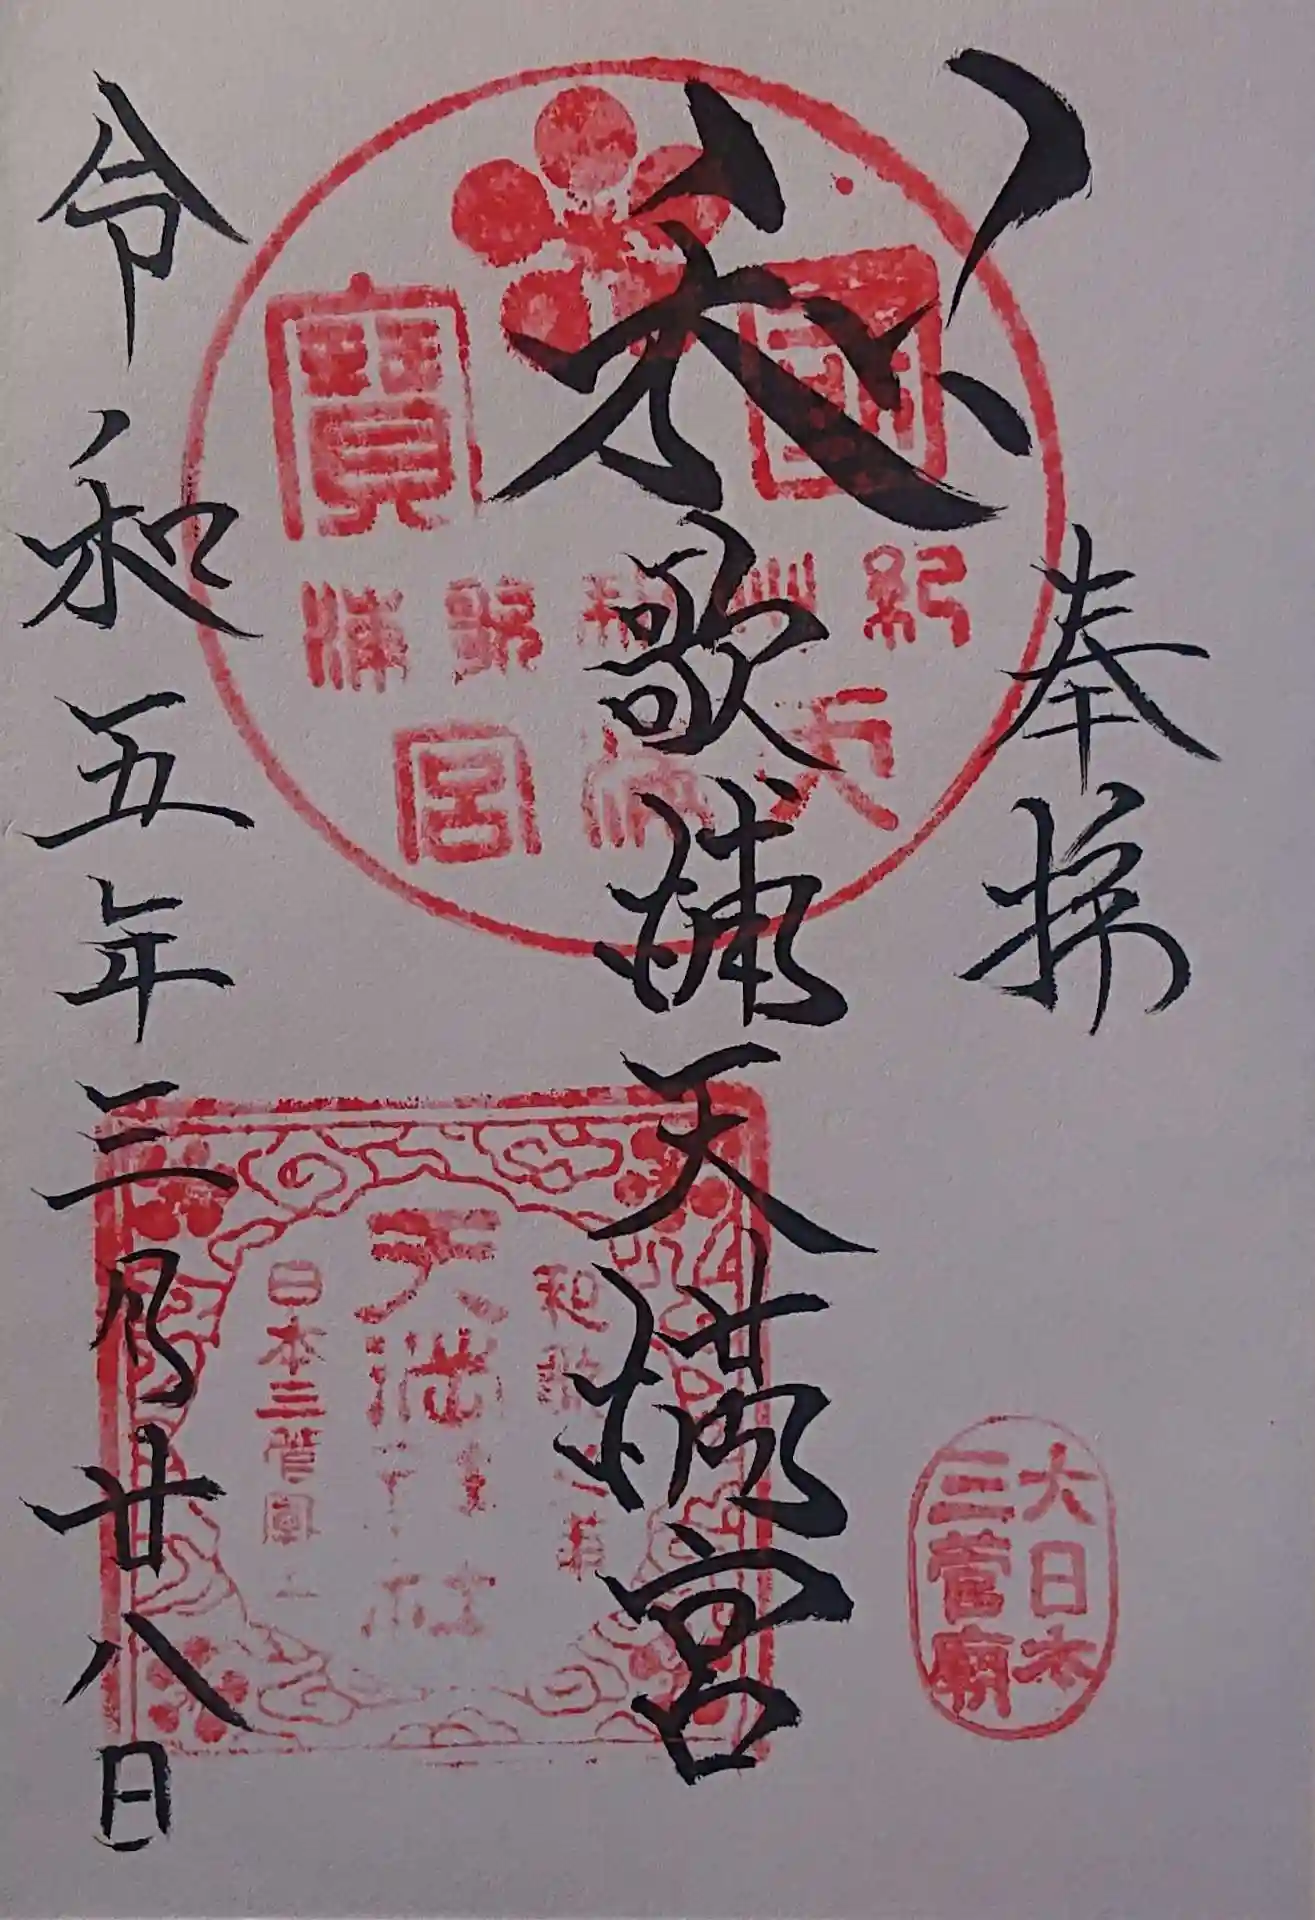 奉拝
和歌浦天満宮
令和五年三月廿八日
國寶
紀州和歌浦
天満宮
和歌
天満宮社
日本三菅廟
大日本
三菅廟